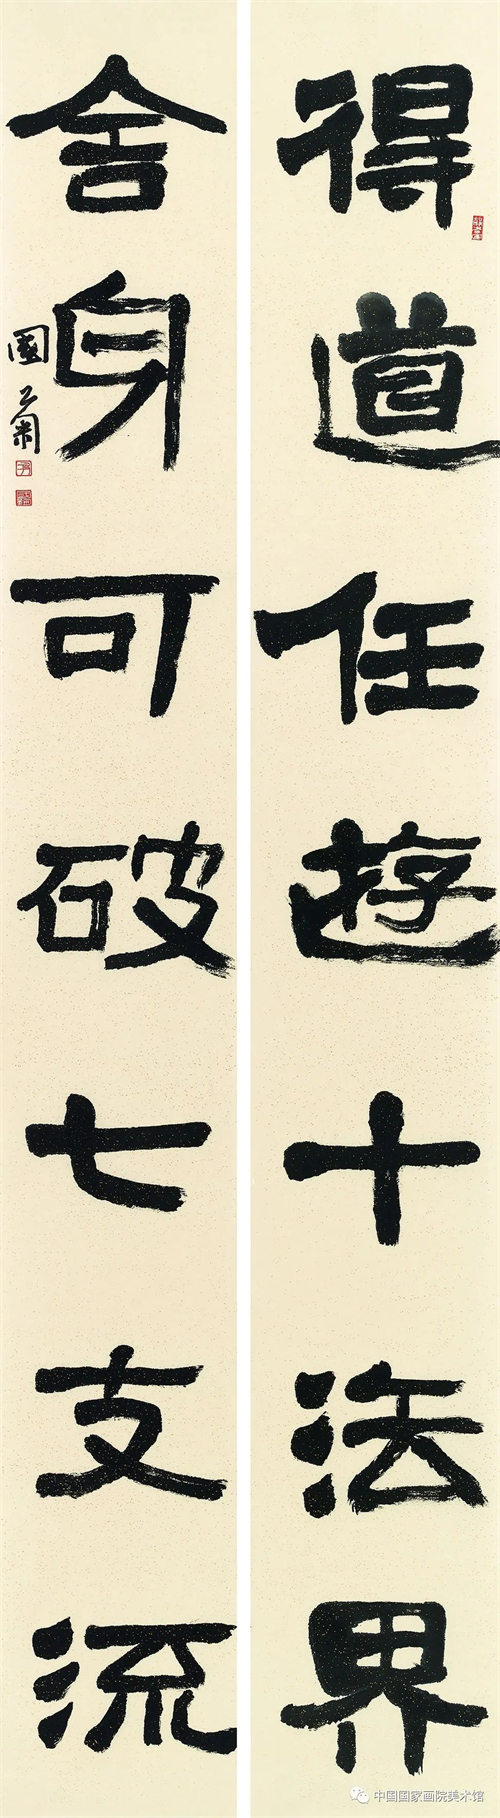 得道任遊十法界
舍身可破七支流
國
中国国家画院美术馆